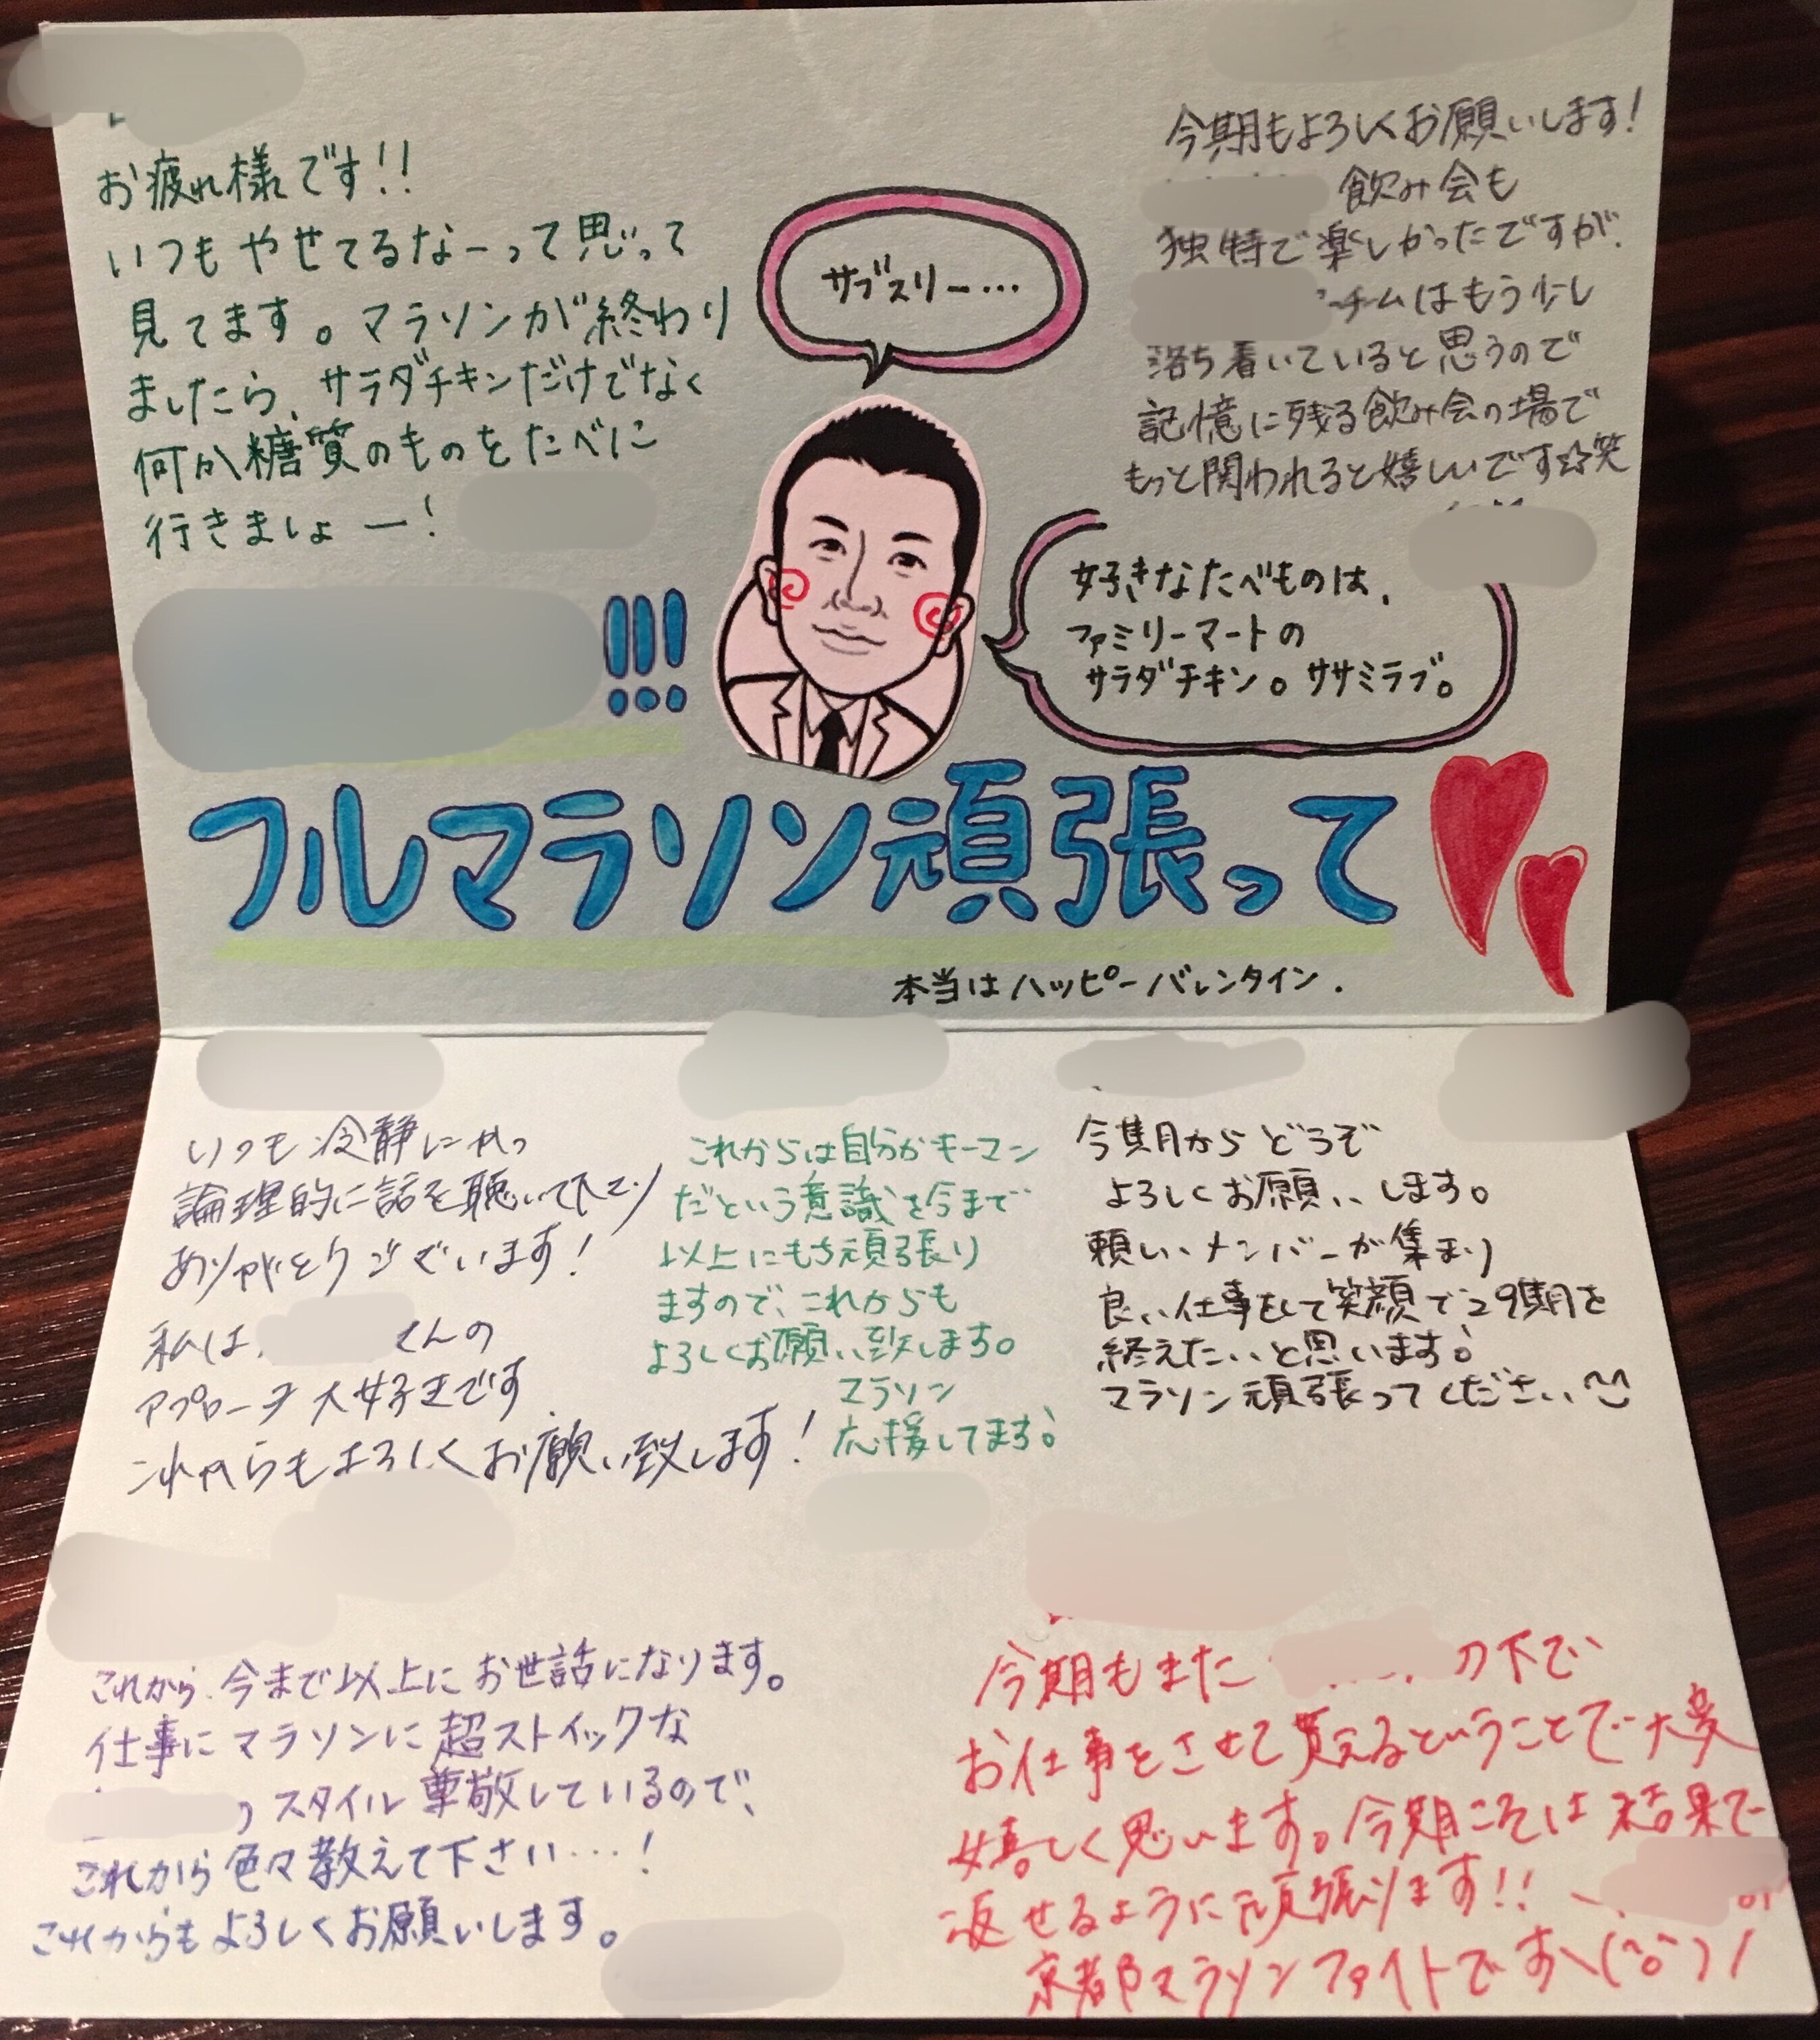 お疲れ様です!!
いつもやせてるなーって思って
見てます。マラソンが終わり
ましたら、サラダチキンだけでなく
何か糖質のものをたべに
行きましょー!
サブスリー…
今期もよろしくお願いします!
飲み会も
独特で楽しかったですが、
チームはもう少し
落ち着いていると思うので
記憶に残る飲み会の場で
もっと関われると嬉しいです☆笑
好きなたべものは、
ファミリーマートの
サラダチキン。ササミラブ。
!!!
フルマラソン頑張って
本当はハッピーバレンタイン.
いつも冷静にかつ
論理的に話を聴いて下さり
ありがとうございます!
私は、
さんの
アプローチ大好きです
これからもよろしくお願い致します!
これからは自分がキーマン
だという意識を今まで
以上にもち頑張り
ますので、これからも
よろしくお願い致します。
マラソン
応援してます!
今期からどうぞ
よろしくお願いします。
頼しいメンバーが集まり
良い仕事をして笑顔で29期を
終えたいと思います!
マラソン頑張ってください
これから、今まで以上にお世話になります。
仕事にマラソンに超ストイックな
スタイル尊敬しているので、
これから色々教えて下さい…!
これからもよろしくお願いします。
今期もまた
の下で
お仕事をさせて貰えるということで大変
嬉しく思います。今期こそは結果で
返せるように頑張ります!!
京都マラソンファイトです\(^o^)/